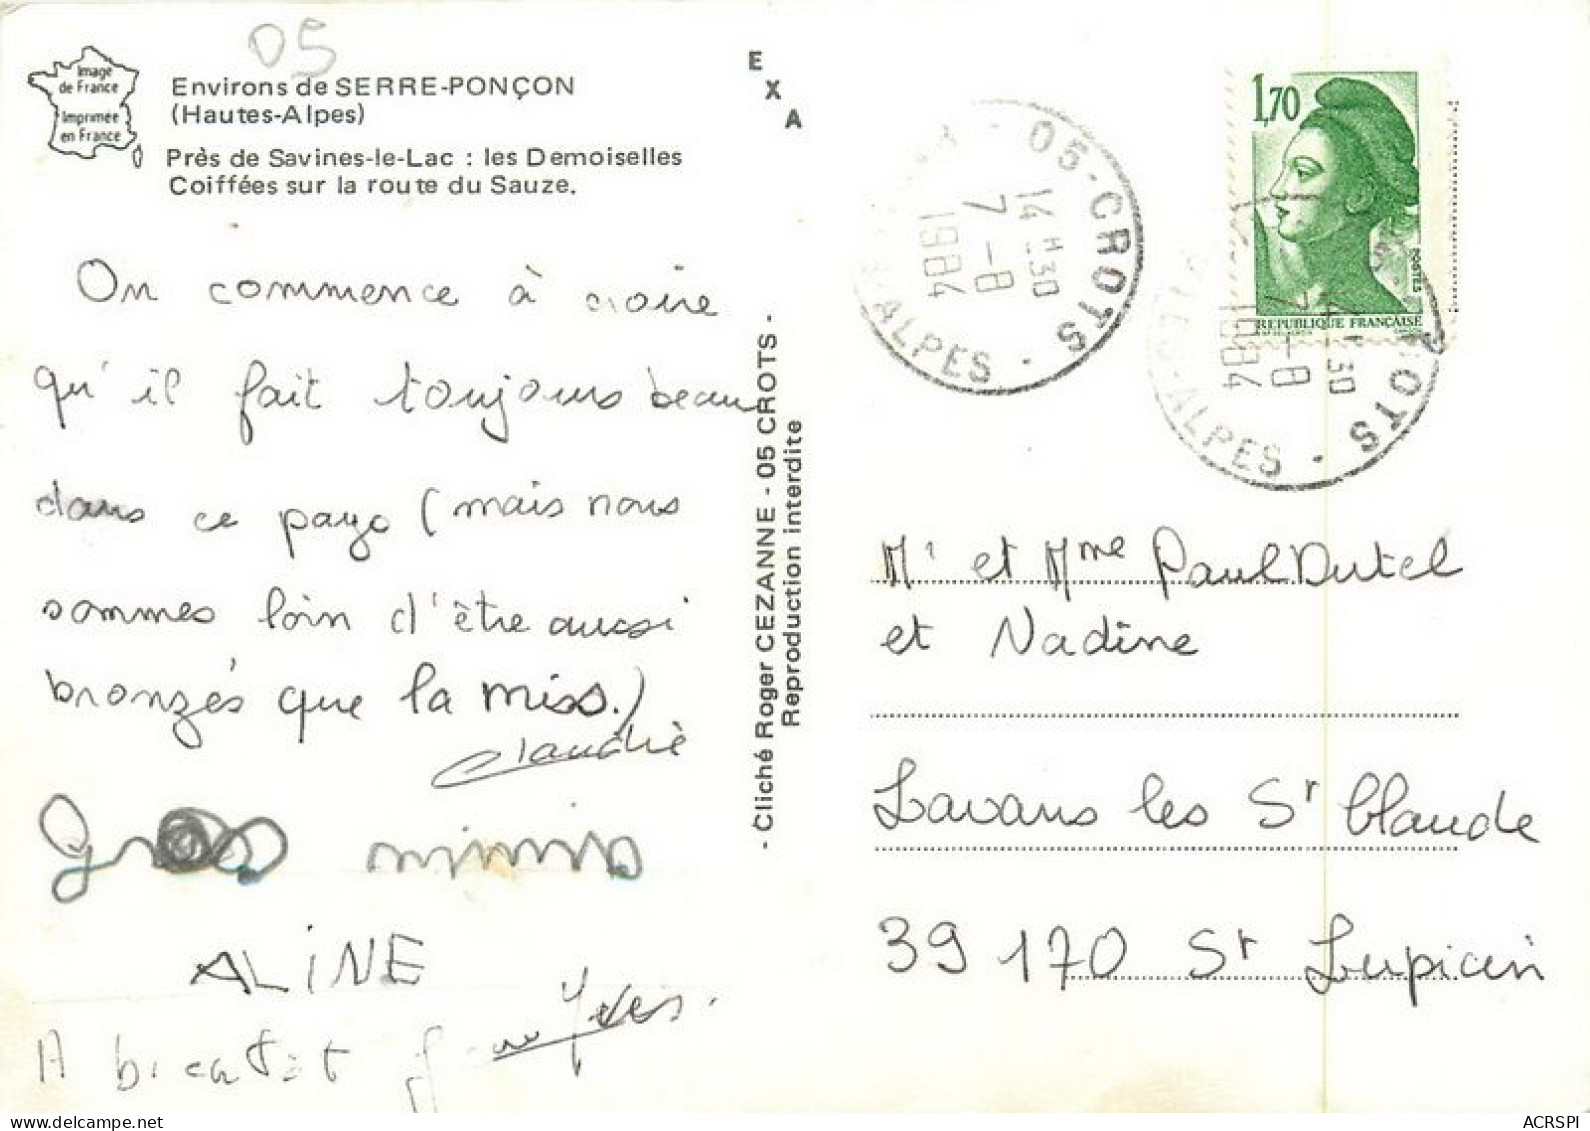 05
Image
de France
Imprimée
en France
Environs de SERRE-PONÇON
(Hautes-Alpes)
Près de Savines-le-Lac : les Demoiselles
Coiffées sur la route du Sauze.
On commence à croire
qu'il fait toujours beau
dans ce pays (mais nous
sommes loin d'être aussi
bronzés que la miss.)
Claudie
Gros mimis
ALINE
A bientôt
Yves.
EXA
- Cliché Roger CEZANNE - 05 CROTS -
Reproduction interdite
05 - CROTS - ALPES
14 H 30
7 - 8
1984
1,70
POSTES
REPUBLIQUE FRANÇAISE
14 H 30
7 - 8
1984
CROTS - ALPES
Mr et Mme Paul Dutel
et Nadine
Lavans les St Claude
39 170 St Lupicin
ACRSPI